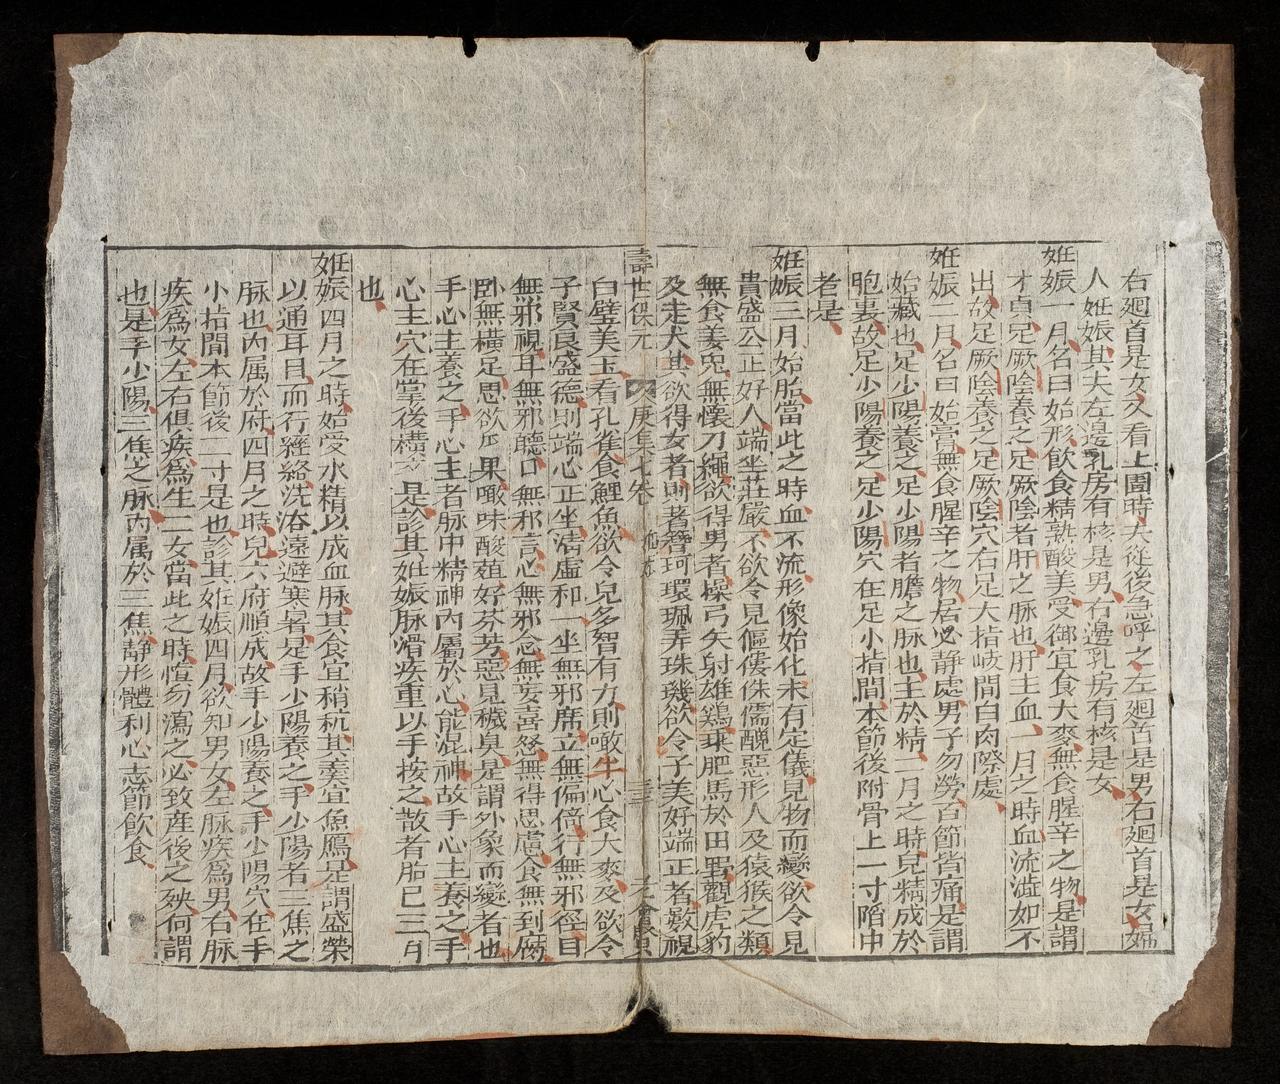 右廻首是女又看上圊時夫從後急呼之左廻首是男右廻首是女婦
人姙娠其夫左邊乳房有核是男右邊乳房有核是女
姙娠一月名曰始形飲食精熟酸美受御宜食大麥無食腥辛之物是謂
才貞足厥陰養之足厥陰者肝之脉也肝主血一月之時血流澁如不
出故足厥陰養之足厥陰穴右足大指岐間白肉際處
姙娠二月名曰始膏無食腥辛之物居必静處男子勿勞百節皆痛是謂
始藏也足少陽養之足少陽者膽之脉也主於精二月之時兒精成於
胞裏故足少陽養之足少陽穴在足小指間本節後附骨上一寸陷中
者是
姙娠三月始胎當此之時血不流形像始化未有定儀見物而變欲令見
貴盛公正好人端坐莊嚴不欲令見傴僂侏儒醜惡形人及猿猴之類
無食姜兎無懷刀繩欲得男者操弓矢射雄鷄乗肥馬於田野觀虎豹
及走犬其欲得女者則著簪珂環珮弄珠璣欲令子美好端正者數視
壽世保元 庚集七卷
白璧美玉看孔雀食鯉魚欲令兒多智有力則噉牛心食大麥及欲令
子賢良盛德則端心正坐清虛和一坐無邪席立無偏倚行無邪徑目
無邪視耳無邪聽口無邪言心無邪念無妄喜怒無得思慮食無到臠
卧無橫足思欲瓜果噉味酸葅好芬芳惡見穢臭是謂外象而變者也
手心主養之手心主者脉中精神內屬於心能混神故手心主養之手
心主穴在掌後橫文是診其姙娠脉滑疾重以手按之散者胎已三月
也
姙娠四月之時始受水精以成血脉其食宜稍秔其羹宜魚鴈是謂盛榮
以通耳目而行經絡洗浴遠避寒暑是手少陽養之手少陽者三焦之
脉也內属於府四月之時兒六府順成故手少陽養之手少陽穴在手
小指間本節後二寸是也診其姙娠四月欲知男女左脉疾爲男右脉
疾爲女左右俱疾爲生二女當此之時愼勿瀉之必致産後之殃何謂
也是手少陽三焦之脉內属於三焦静形體利心志節飲食